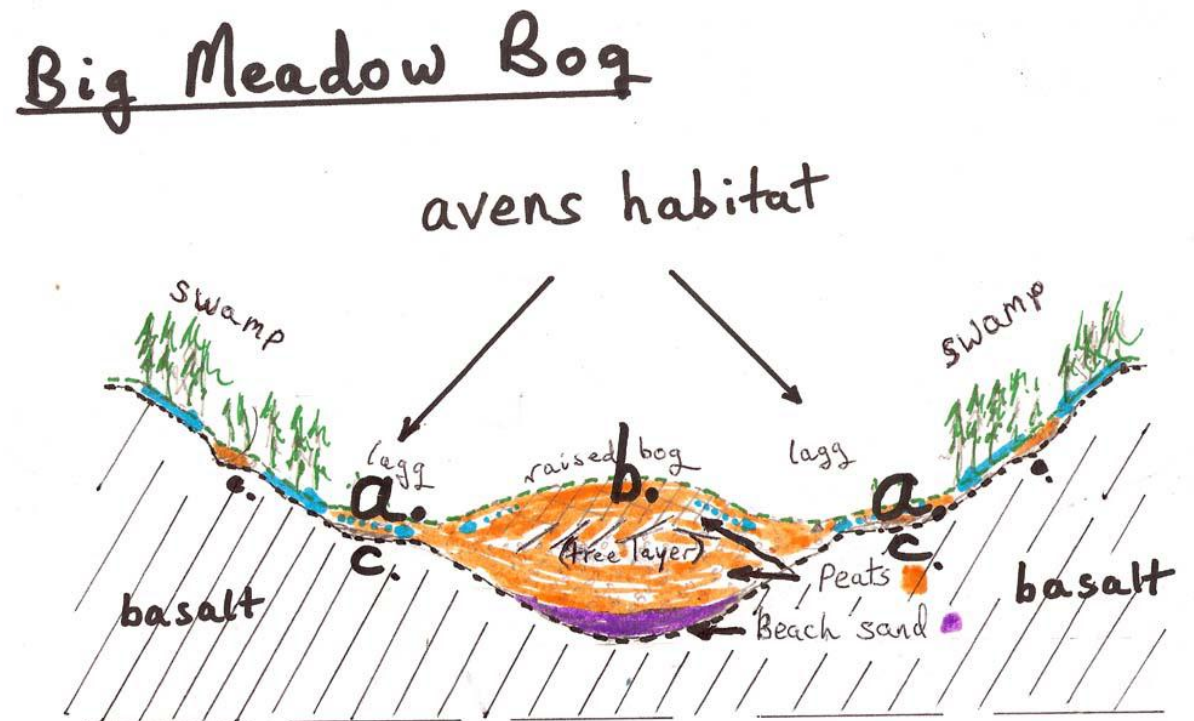 Big Meadow Bog
avens habitat
swamp
swamp
lagg
raised bog
lagg
a.
b.
a.
(tree layer)
c.
c.
Peats
basalt
basalt
Beach sand